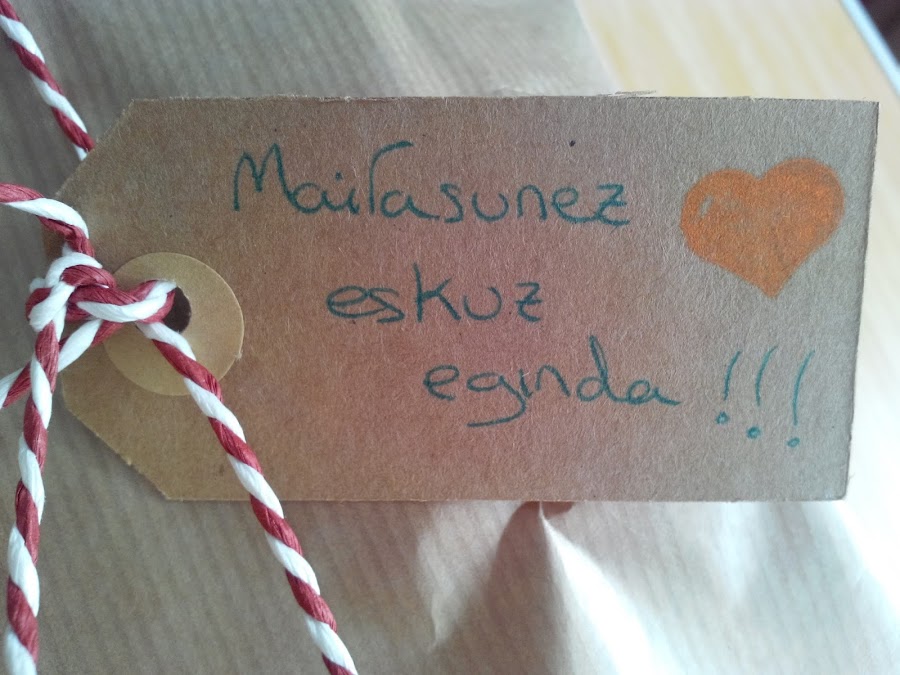 Maitasunez
eskuz
eginda !!!